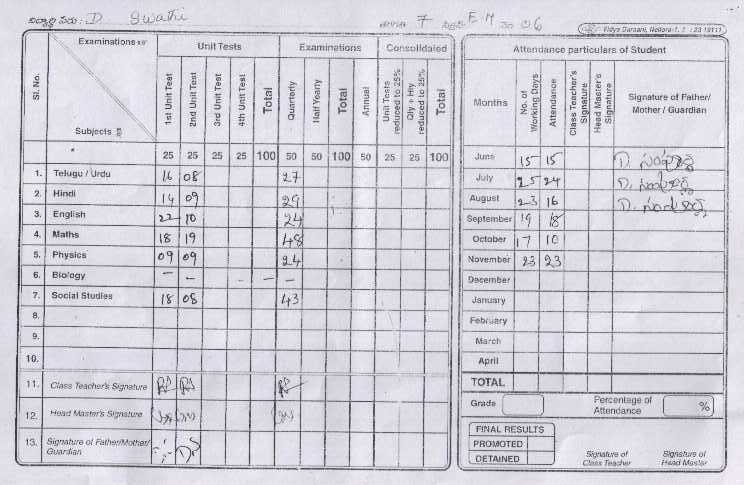 విద్యార్థి పేరు: D. Swathi తరగతి 7 సెక్షన్ E.M నం 06
Vidya Darsani, Nellore-1.
Examinations
Unit Tests Examinetions Consolidated
Sl. No.
Subjects
1st Unit Test 2nd Unit Test 3rd Unit Test 4th Unit Test Total Quarterly Half Yearly Total Annual Unit Tests reduced to 25% Qly + Hly reduced to 25% Total
25 25 25 25 100 50 50 100 50 25 25 100
1. Telugu / Urdu 16 08 27
2. Hindi 14 09 29
3. English 22 10 24
4. Maths 18 19 48
5. Physics 09 09 24
6. Biology – – – – –
7. Social Studies 18 08 43
8.
9.
10.
11. Class Teacher's Signature
12. Head Master's Signature
13. Signature of Father/Mother/
Guardian
Attendance particulars of Student
Months No. of Working Days Attendance Class Teacher's Signature Head Master's Signature Signature of Father/
Mother / Guardian
June 15 15
July 25 24
August 23 16
September 19 18
October 17 10
November 23 23
December
January
February
March
April
TOTAL
Grade Percentage of
Attendance %
FINAL RESULTS
PROMOTED
DETAINED
Signature of
Class Teacher
Signature of
Head Master